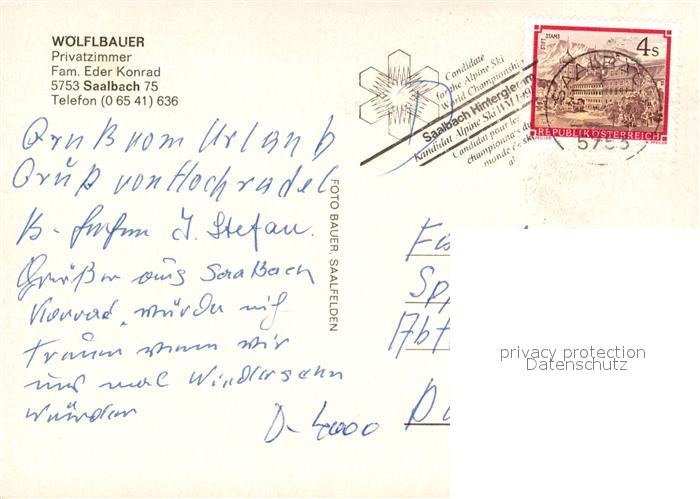 WÖLFLBAUER
Privatzimmer
Fam. Eder Konrad
5753 Saalbach 75
Telefon (0 65 41) 636
Candidate
for the Alpine Ski
World Championship
Saalbach Hinterglemm
Kandidat Alpine Ski WM
Candidat pour les
championnats du
monde de ski
STIFT STAMS
4 S
REPUBLIK ÖSTERREICH
SAALBACH
5753
Gruß vom Urlaub
Gruß von Hochradel
J. Stefan.
Grüßer aus Saalbach
Konrad, würde
wenn wir
uns mal Wiedersehn
würden
D-4000
FOTO BAUER, SAALFELDEN
Fa
Sp
Abt
D
privacy protection
Datenschutz